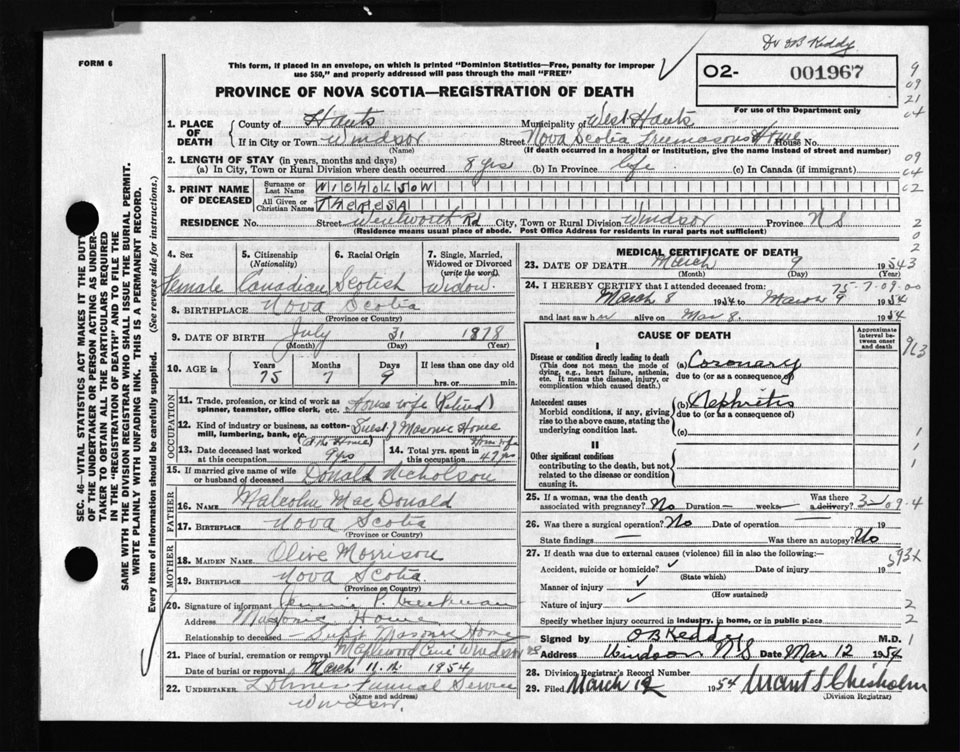 Dr OB Keddy
FORM 6
This form, if placed in an envelope, on which is printed "Dominion Statistics—Free, penalty for improper
use $50," and properly addressed will pass through the mail "FREE"
O2- 001967
PROVINCE OF NOVA SCOTIA—REGISTRATION OF DEATH
For use of the Department only
9
09
21
04
09
04
02
2
0
2
SEC. 46—VITAL STATISTICS ACT MAKES IT THE DUTY
OF THE UNDERTAKER OR PERSON ACTING AS UNDER-
TAKER TO OBTAIN ALL THE PARTICULARS REQUIRED
IN THE "REGISTRATION OF DEATH" AND TO FILE THE
SAME WITH THE DIVISION REGISTRAR WHO SHALL ISSUE THE BURIAL PERMIT.
WRITE PLAINLY WITH UNFADING INK. THIS IS A PERMANENT RECORD.
Every item of information should be carefully supplied. (See reverse side for instructions.)
1. PLACE OF DEATH
County of Hants Municipality of West Hants
If in City or Town Windsor Street Nova Scotia Freemasons Home House No.
(Name) (If death occurred in a hospital or institution, give the name instead of street and number)
2. LENGTH OF STAY (in years, months and days)
(a) In City, Town or Rural Division where death occurred 8 yrs (b) In Province life (c) In Canada (if immigrant)
3. PRINT NAME OF DECEASED
Surname or Last Name NICHOLSON
All Given or Christian Names THERESA
RESIDENCE No. Street Wentworth Rd City, Town or Rural Division Windsor Province N S
(Residence means usual place of abode. Post Office Address for residents in rural parts not sufficient)
4. Sex
Female
5. Citizenship (Nationality)
Canadian
6. Racial Origin
Scotish
7. Single, Married, Widowed or Divorced (write the word)
Widow.
8. BIRTHPLACE Nova Scotia
(Province or Country)
9. DATE OF BIRTH July 31 1878
(Month) (Day) (Year)
10. AGE in Years 75 Months 7 Days 9 If less than one day old
hrs. or min.
OCCUPATION
11. Trade, profession, or kind of work as spinner, teamster, office clerk, etc. House wife (Retired)
12. Kind of industry or business, as cotton-mill, lumbering, bank, etc. Guest of Masonic Home
13. Date deceased last worked at this occupation 9 yrs
14. Total yrs. spent in this occupation 47 yrs
15. If married give name of wife or husband of deceased Donald Nicholson
FATHER
16. NAME Malcolm MacDonald
17. BIRTHPLACE Nova Scotia
(Province or Country)
MOTHER
18. MAIDEN NAME Olive Morrison
19. BIRTHPLACE Nova Scotia.
(Province or Country)
20. Signature of informant
Address Masonic Home
Relationship to deceased — Supt Masonic Home
21. Place of burial, cremation or removal Maplewood Cem Windsor NS
Date of burial or removal March 11th 1954
22. UNDERTAKER Funeral Service
(Name and address)
Windsor.
MEDICAL CERTIFICATE OF DEATH
23. DATE OF DEATH March 9 1954 3
(Month) (Day) (Year)
75-7-09-00
24. I HEREBY CERTIFY that I attended deceased from:
March 8 1954 to March 9 1954
and last saw her alive on Mar 8. 1954
CAUSE OF DEATH
Approximate interval between onset and death
I
Disease or condition directly leading to death
(This does not mean the mode of dying, e.g., heart failure, asthenia, etc. It means the disease, injury, or complication which caused death.)
(a) Coronary
due to (or as a consequence of)
963
Antecedent causes
Morbid conditions, if any, giving rise to the above cause, stating the underlying condition last.
(b) Nephritis
due to (or as a consequence of)
(c)
II
Other significant conditions
contributing to the death, but not related to the disease or condition causing it.
1
1
1
25. If a woman, was the death associated with pregnancy? No Duration — weeks — Was there a delivery?
3-09-4
26. Was there a surgical operation? No Date of operation — 19
State findings — Was there an autopsy? No
27. If death was due to external causes (violence) fill in also the following:—
Accident, suicide or homicide? ✓ Date of injury 19
(State which)
593x
Manner of injury ✓
(How sustained)
Nature of injury ✓
2
Specify whether injury occurred in industry, in home, or in public place
1
Signed by OB Keddy M.D.
2
Address Windsor N S Date Mar 12 1954
28. Division Registrar's Record Number
29. Filed March 12 1954 Grant S Chisholm
(Division Registrar)